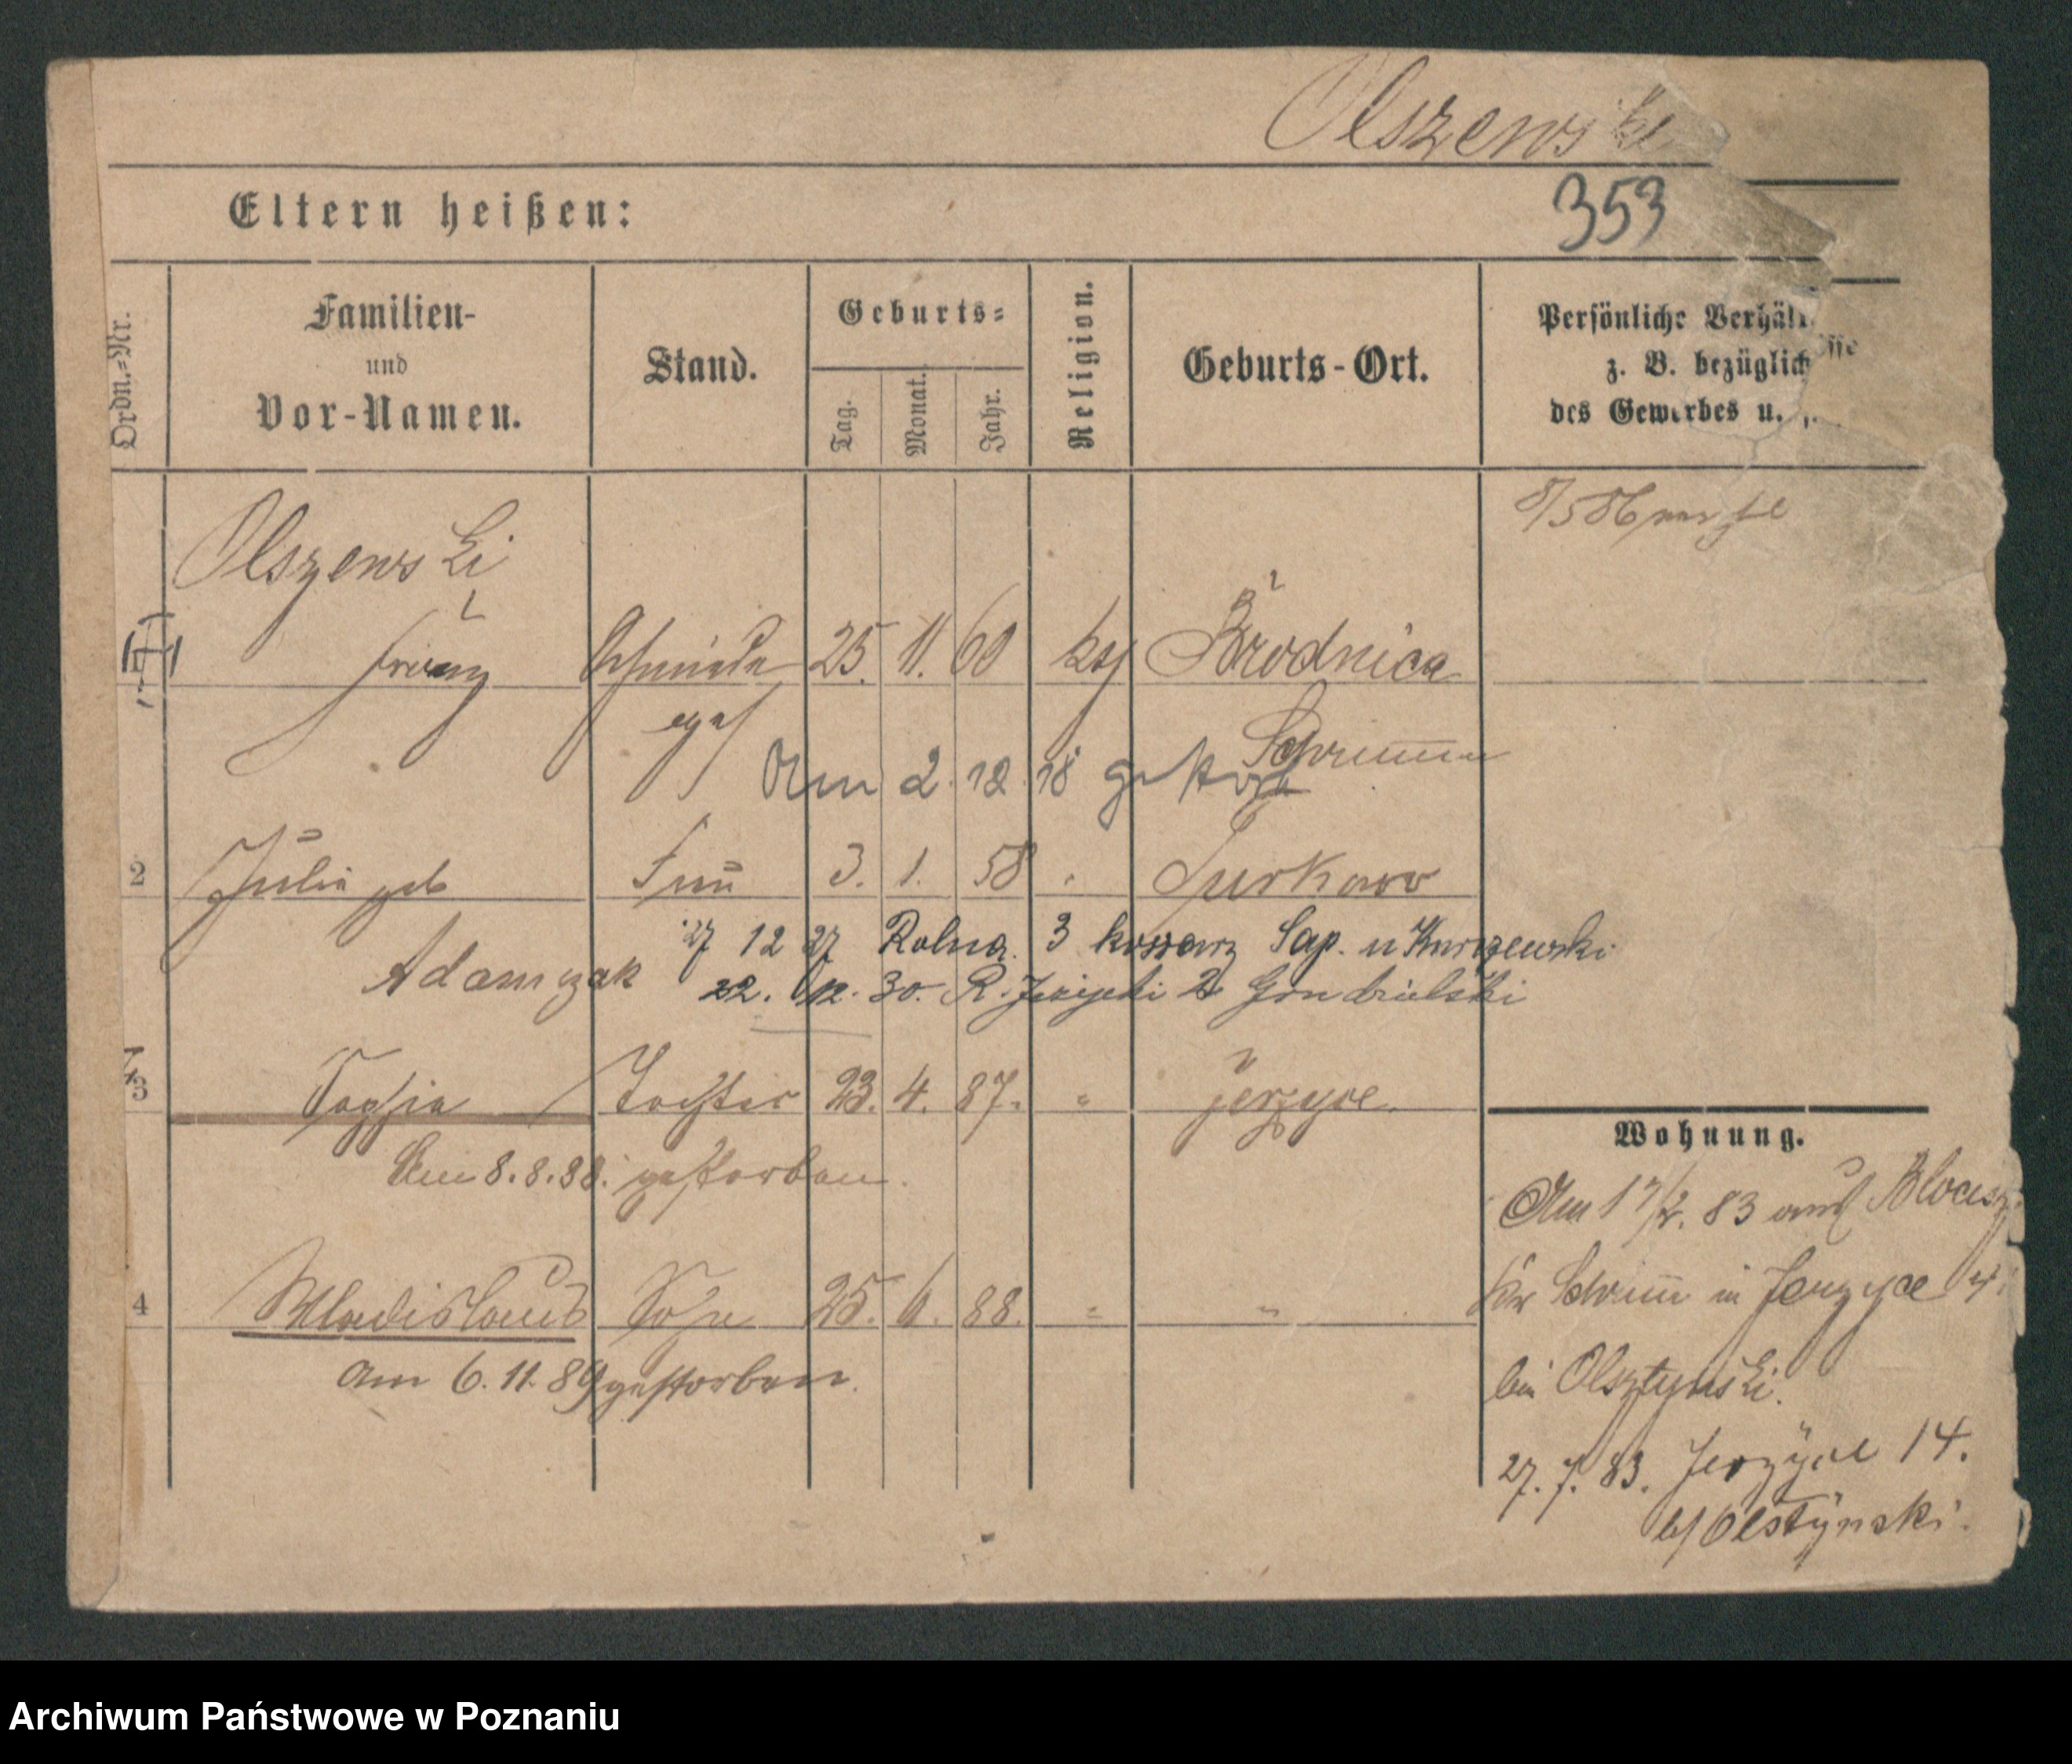 Olszewski
353
Eltern heißen:
Ordn.=Nr.
Familien-
und
Vor-Namen.
Stand.
Geburts=
Tag.
Monat.
Jahr.
Religion.
Geburts-Ort.
Persönliche Verhält
z. B. bezüglich
des Gewerbes u.
Olszewski
Franz Schmiede 25. 11. 60 kth Brodnica
Schrimm
Am 2. 12. 18 gestorb
2 Julia geb Frau 3. 1. 58 " Turkowo
27 12 27 Rolna 3 Sap. u Kurzewski
Adamczak
22. 12. 30. R. Jeżycki 2
3 Sophia Tochter 23. 4. 87. " Jerzyce.
Am 8. 8. 88. gestorben.
4 Wladislaus Sohn 25. 6. 88. " "
am 6. 11. 89 gestorben.
Wohnung.
Am 17/2. 83 aus
Kr Schrimm in Jerzyce
bei Olsztynski.
27. 7. 83. Jerzyce 14.
b/ Olstynski.
Archiwum Państwowe w Poznaniu